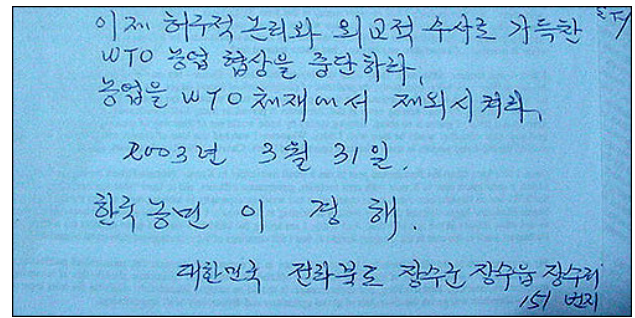 이제 허구적 논리와 외교적 수사로 가득찬
WTO 농업 협상을 중단하라,
농업을 WTO 체재에서 제외시켜라,
2003년 3월 31일.
한국농민 이 경 해.
대한민국 전라북도 장수군 장수읍 장수리
151 번지